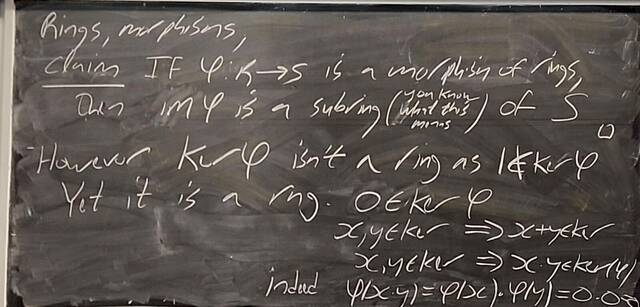 Rings, morphisms,
Claim If φ: R→S is a morphism of rings,
Then im φ is a subring (you know what this means) of S □
However Ker φ isn't a ring as 1∉Ker φ
Yet it is a rng. 0∈ker φ
x,y∈ker ⟹ x+y∈ker
x,y∈ker ⟹ x·y∈ker(φ)
indeed φ(x·y)=φ(x)·φ(y)=0.0=